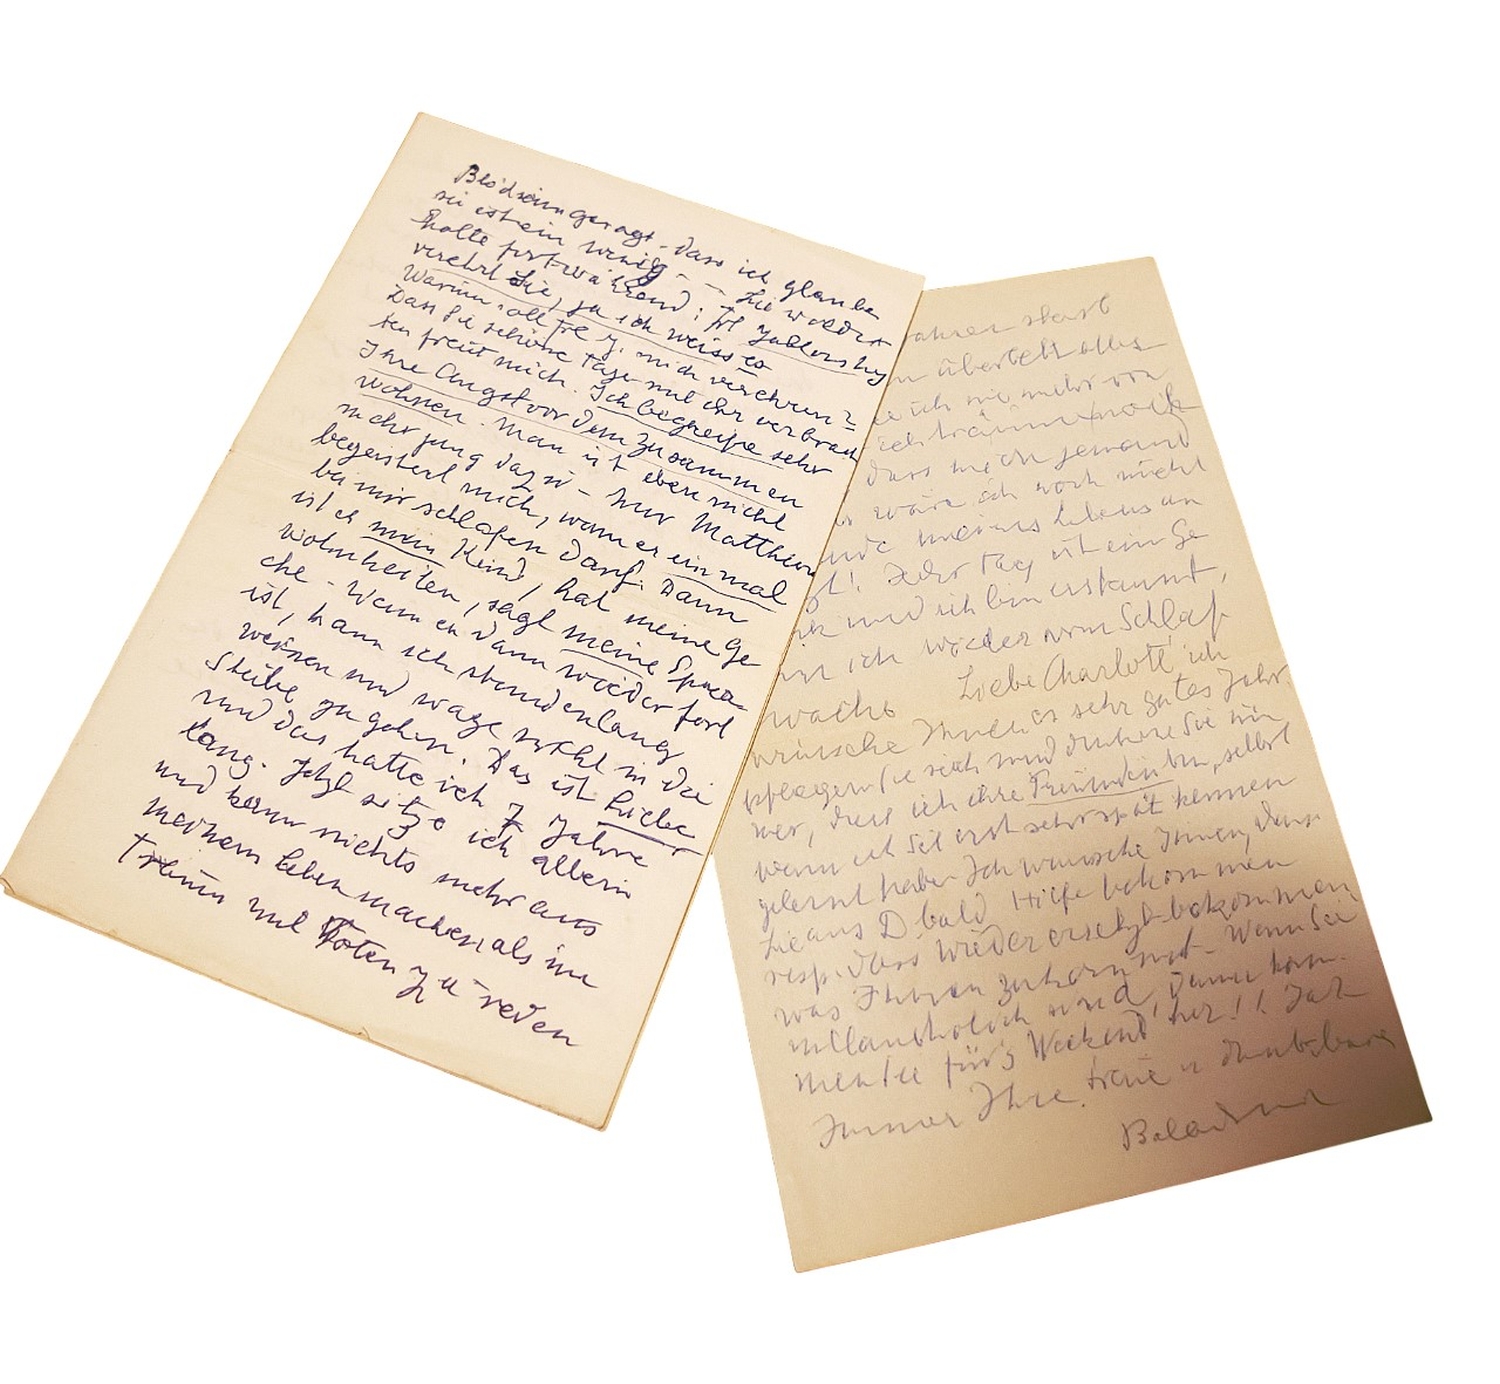 Blödsinn gesagt. dass ich glaube
sie ist ein wenig – – Sie wieder
holte fortwährend: Frl Jablonsky
verehrt Sie, ja ich weiss es
Warum soll Frl J. mich verehren?
Dass Sie schöne Tage mit ihr verbrach
ten freut mich. Ich begreife sehr
Ihre Angst vor dem zusammen
wohnen. Man ist eben nicht
mehr jung dazu – Nur Matthieu
begeistert mich, wann er einmal
bei mir schlafen darf. Dann
ist es mein Kind, hat meine Ge
wohnheiten, sagt meine Spra
che – Wann er dann wieder fort
ist, kann ich stundenlang
weinen und wage nicht in die
Stube zu gehen. Das ist Liebe
und das hatte ich 7 Jahre
lang. Jetzt sitze ich allein
und kann nichts mehr aus
meinem Leben machen als im
Traum mit Toten zu reden
starb
überlebt alles
ich nie mehr von
ich träume noch
dass mich jemand
wäre ich noch nicht
meines Lebens an
! Jeder Tag ist ein Ge
und ich bin erstaunt,
ich wieder vom Schlaf
wache Liebe Charlott' ich
wünsche Ihnen es sehr gutes Jahr.
pflegen Sie sich und Sie im
mer, dass ich ihre Freundin bin, selbst
wann ich Sie erst sehr spät kennen
gelernt habe. Ich wünsche Ihnen, dass
Sie aus D bald Hilfe bekommen
resp. dass wieder ersetzt bekommen
was Ihnen zukommt. Wenn Sie
melancholich sind, dann kom.
men Sie für's Weekend her!! Ja?
Immer Ihre treue u dankbare